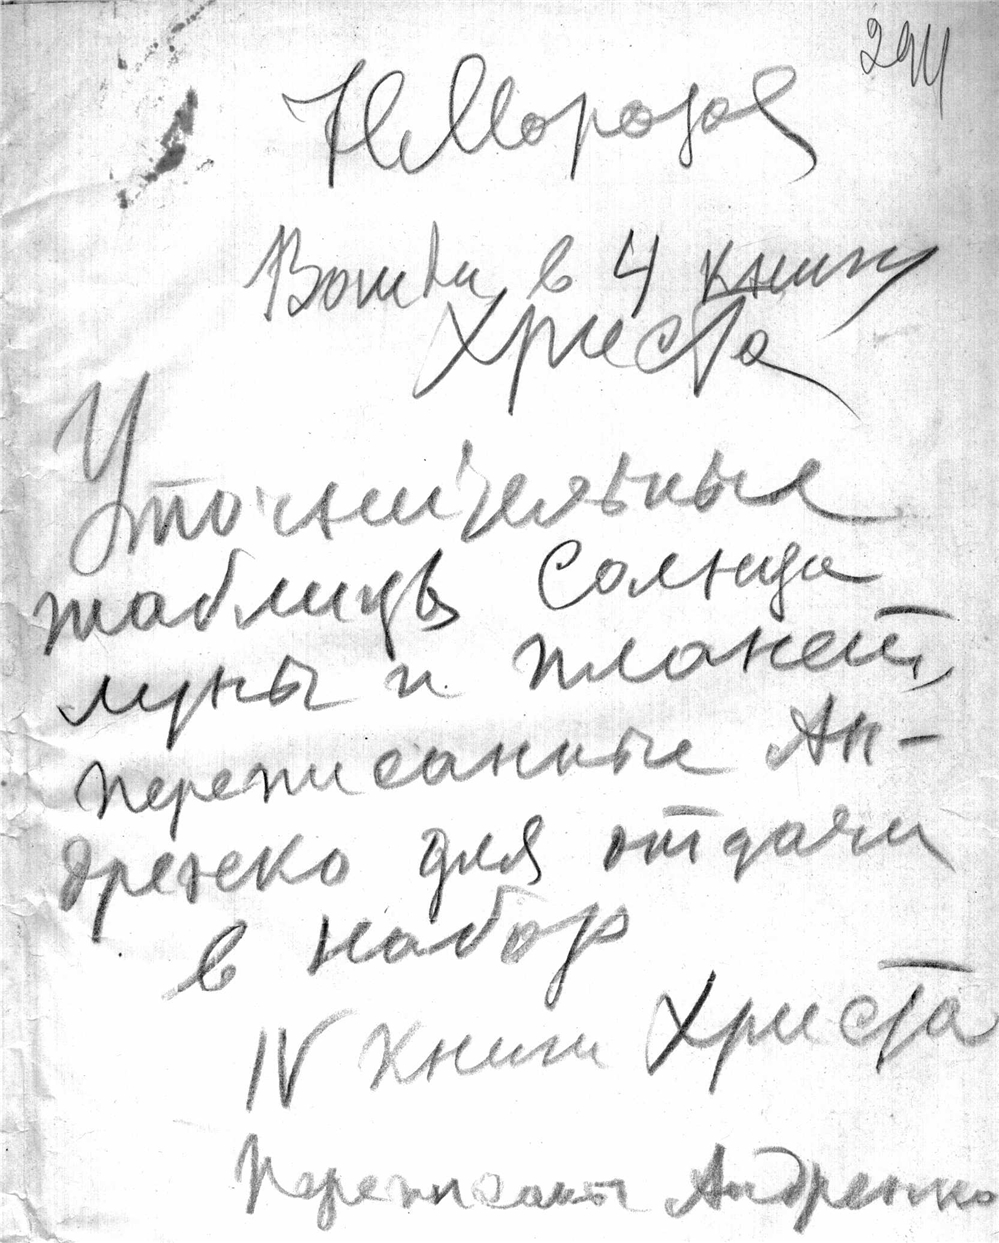 294
Н. Морозов
Вошли в 4 книгу
Христа
Уточнительные
таблицы Солнца
луны и планет,
переписанные Ан-
дренко для отдачи
в набор
IV книги Христа
Переписаны Андренко